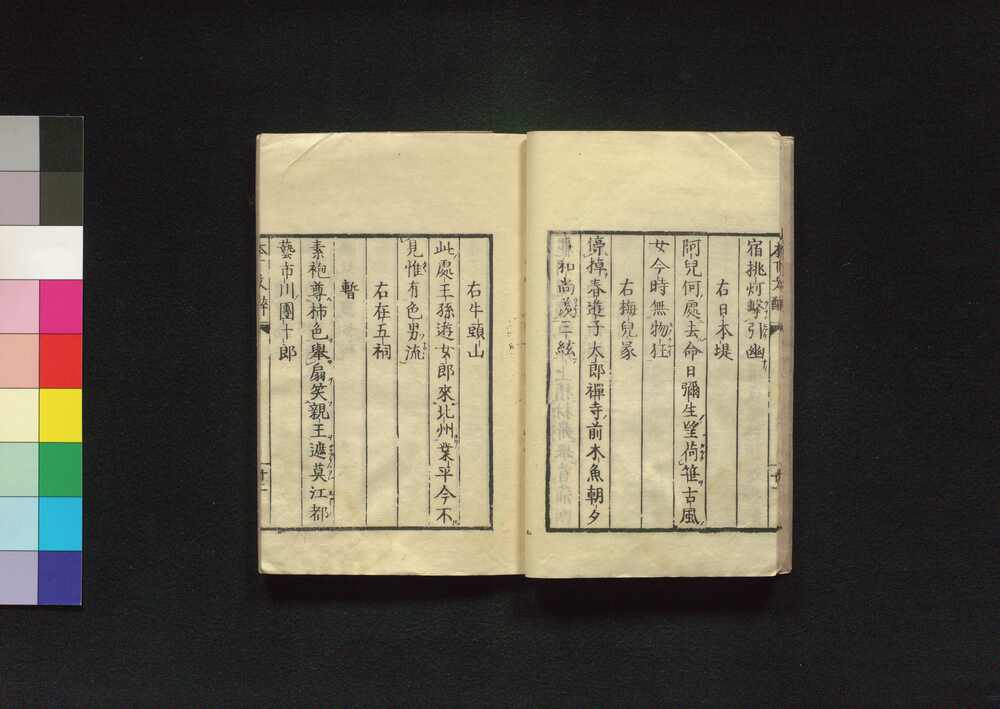 宿挑灯擊引幽
右日本堤
阿兒何處去命日彌生望荷笹古風
女今時無物狂
右梅兒冢
停掉春遊子太郎禪寺前木魚朝夕
和尚義三絃
右牛頭山
此處王孫遊女郎來北州業平今不
見惟有色男流
右在五祠
暫
素袍尊柿色擧扇笑親王遮莫江都
藝市川團十郎